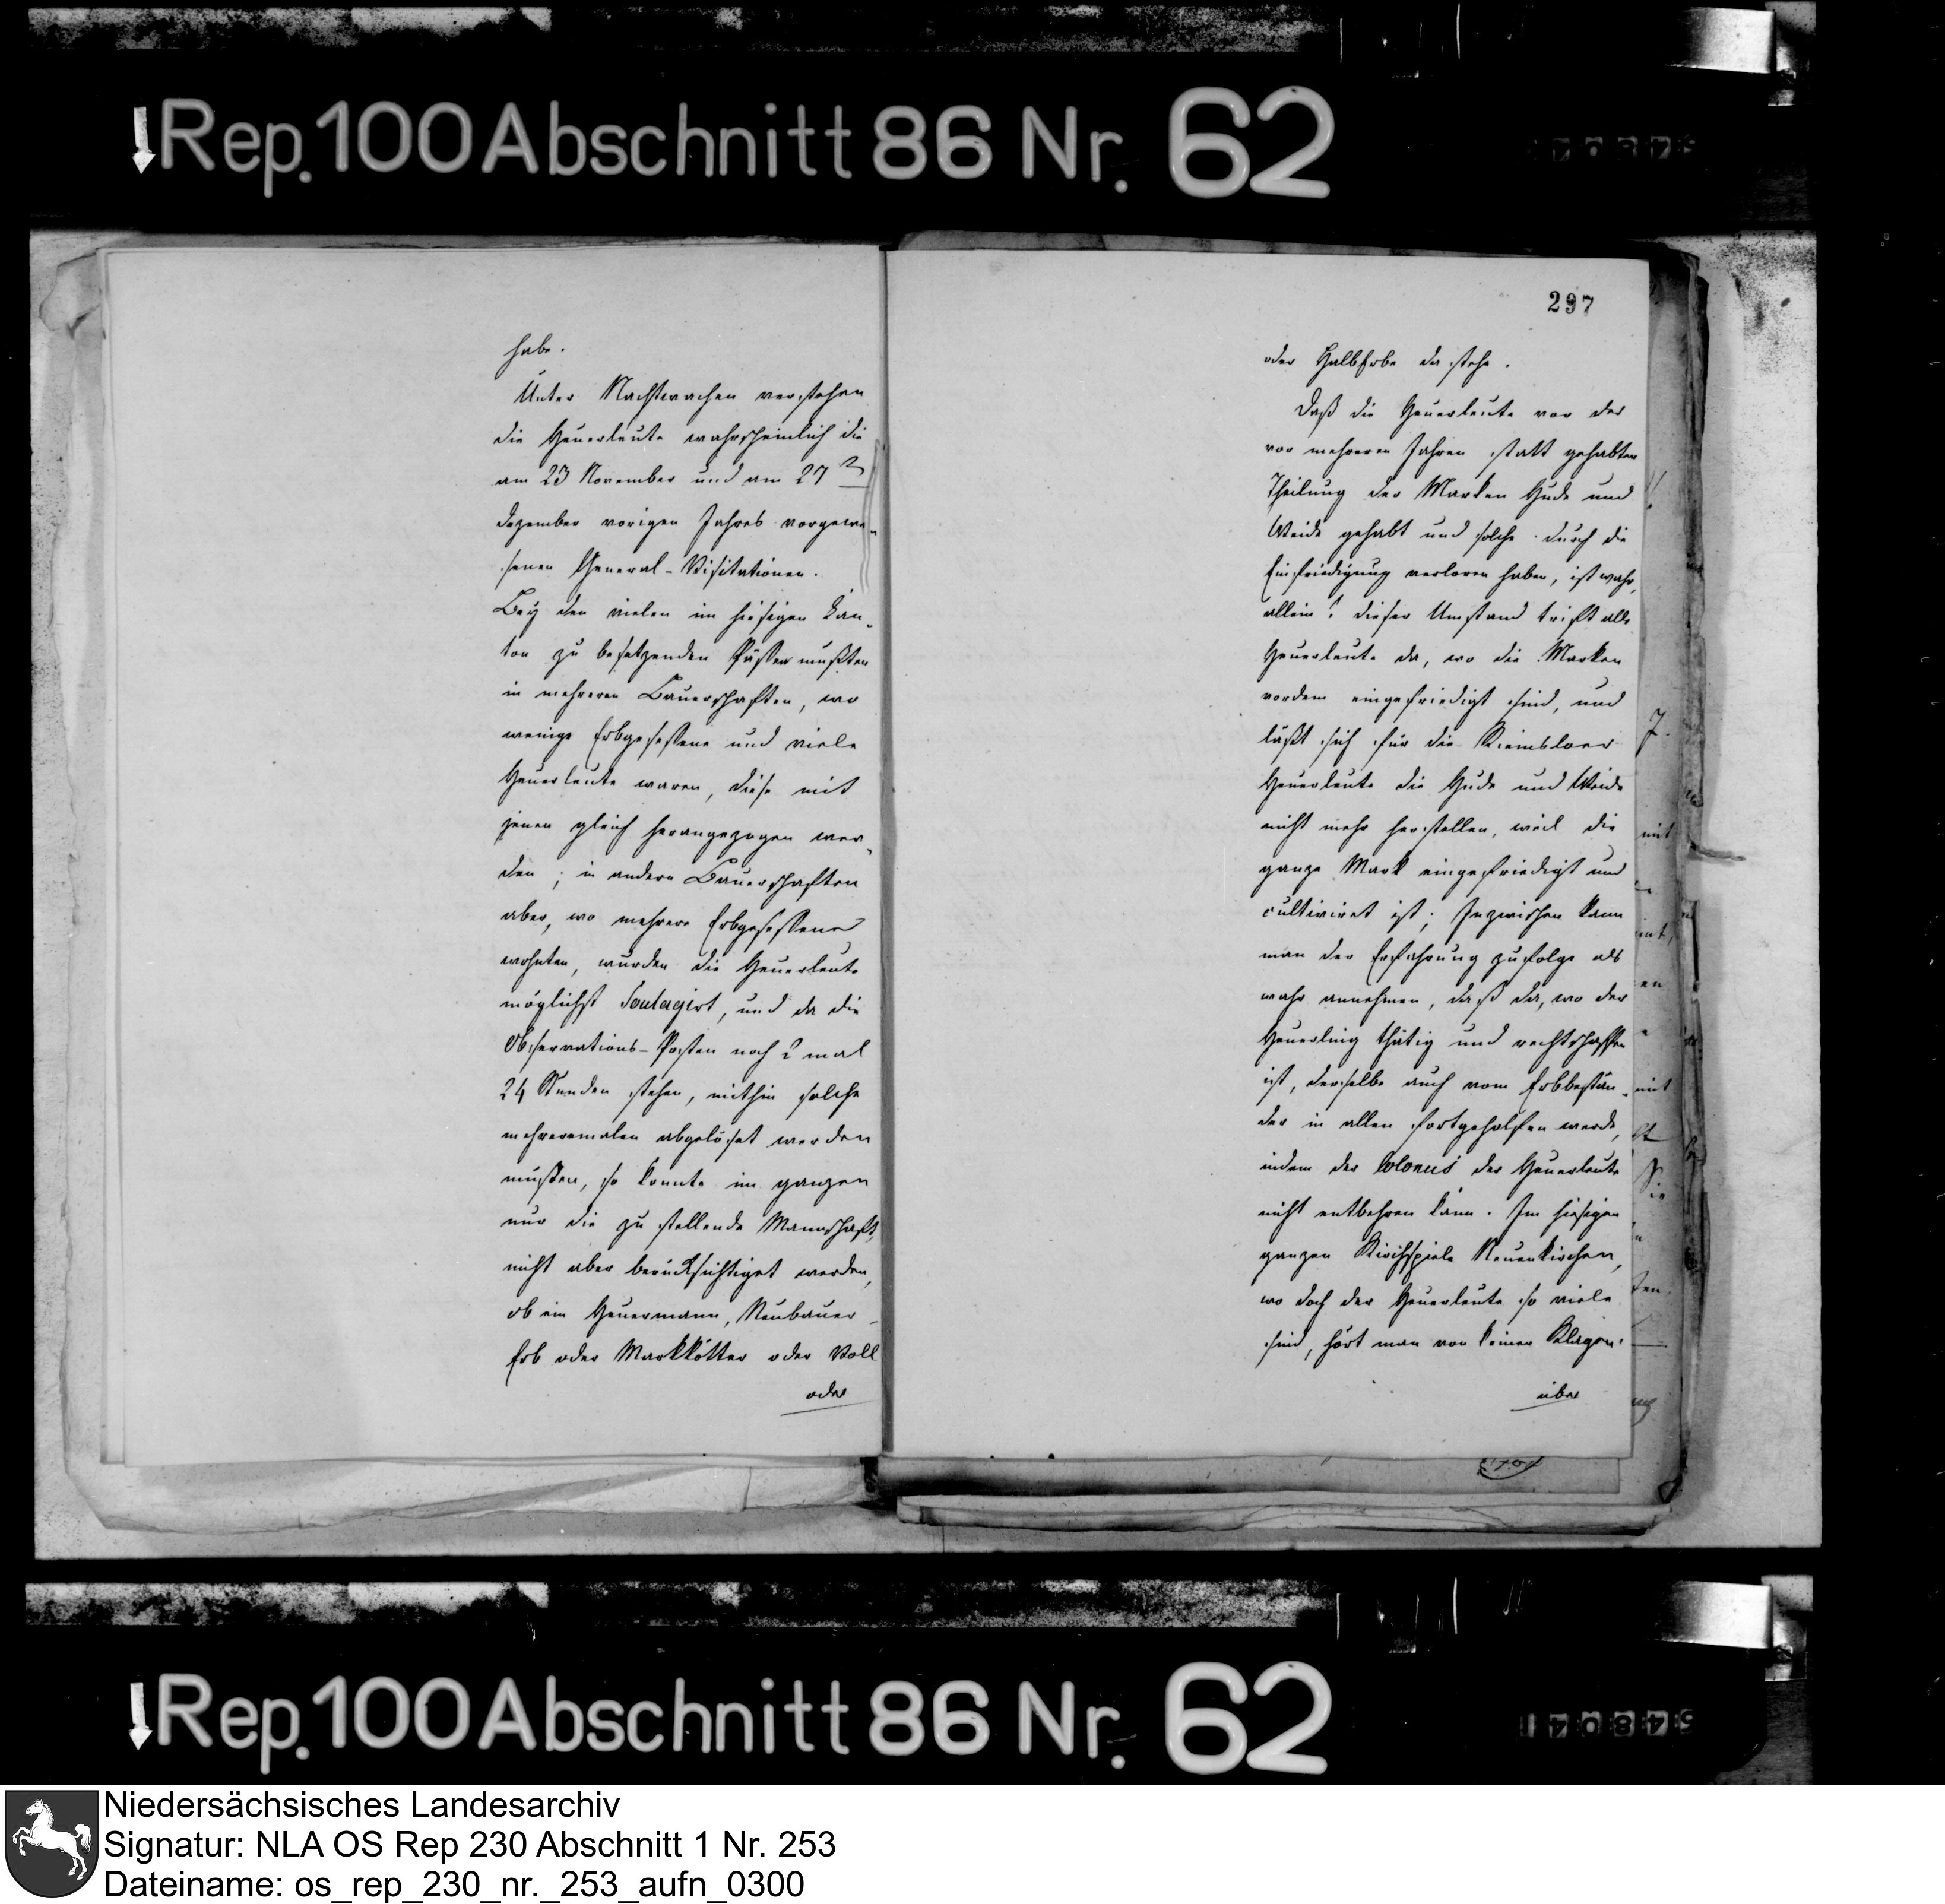 Rep. 100 Abschnitt 86 Nr. 62
habe.
Unter Nachtwachen verstehen
die Heuerleute wahrscheinlich die
am 23 November und am 27
Dezember vorigen Jahres vorgewe-
senen General-Visitationen.
Bey den vielen im hiesigen Kan-
ton zu besetzenden Pösten mußten
in mehreren Bauerschaften, wo
wenige Erbgesessene und viele
Heuerleute waren, diese mit
jenen gleich herangezogen wer-
den; in andern Bauerschaften
aber, wo mehrere Erbgesessene
wohnten, wurden die Heuerleute
möglichst Soulagirt, und da die
Observations-Posten noch 2 mal
24 Stunden stehen, mithin solche
mehreremalen abgelöset werden
mußten, so konnte im ganzen
nur die zu stellende Mannschaft,
nicht aber berücksichtiget werden,
ob ein Heuermann, Neubauer
Erb oder Markkötter oder Voll
oder
297
oder Halberbe da stehe.
Daß die Heuerleute vor der
vor mehreren Jahren statt gehabten
Theilung der Marken Hude und
Weide gehabt und solche durch die
Einfriedigung verloren haben, ist wahr,
allein! dieser Umstand trift alle
Heuerleute da, wo die Marken
vordem eingefriedigt sind, und
läßt sich für die Riemsloer
Heuerleute die Hude und Weide
nicht mehr herstellen, weil die
ganze Mark eingefriedigt und
cultiviret ist; Inzwischen kann
man der Erfahrung zufolge als
wahr annehmen, daß da, wo der
Heuerling thätig und rechtschaffen
ist, derselbe auch vom Erbbestän-
der in allen fortgeholfen werde,
indem der Colonus der Heuerleute
nicht entbehren kann. Im hiesigen
ganzen Kirchspiele Neuenkirchen,
wo doch der Heuerleute so viele
sind, hört man von keinen Klagen
über
Rep. 100 Abschnitt 86 Nr. 62
Niedersächsisches Landesarchiv
Signatur: NLA OS Rep 230 Abschnitt 1 Nr. 253
Dateiname: os_rep_230_nr._253_aufn_0300